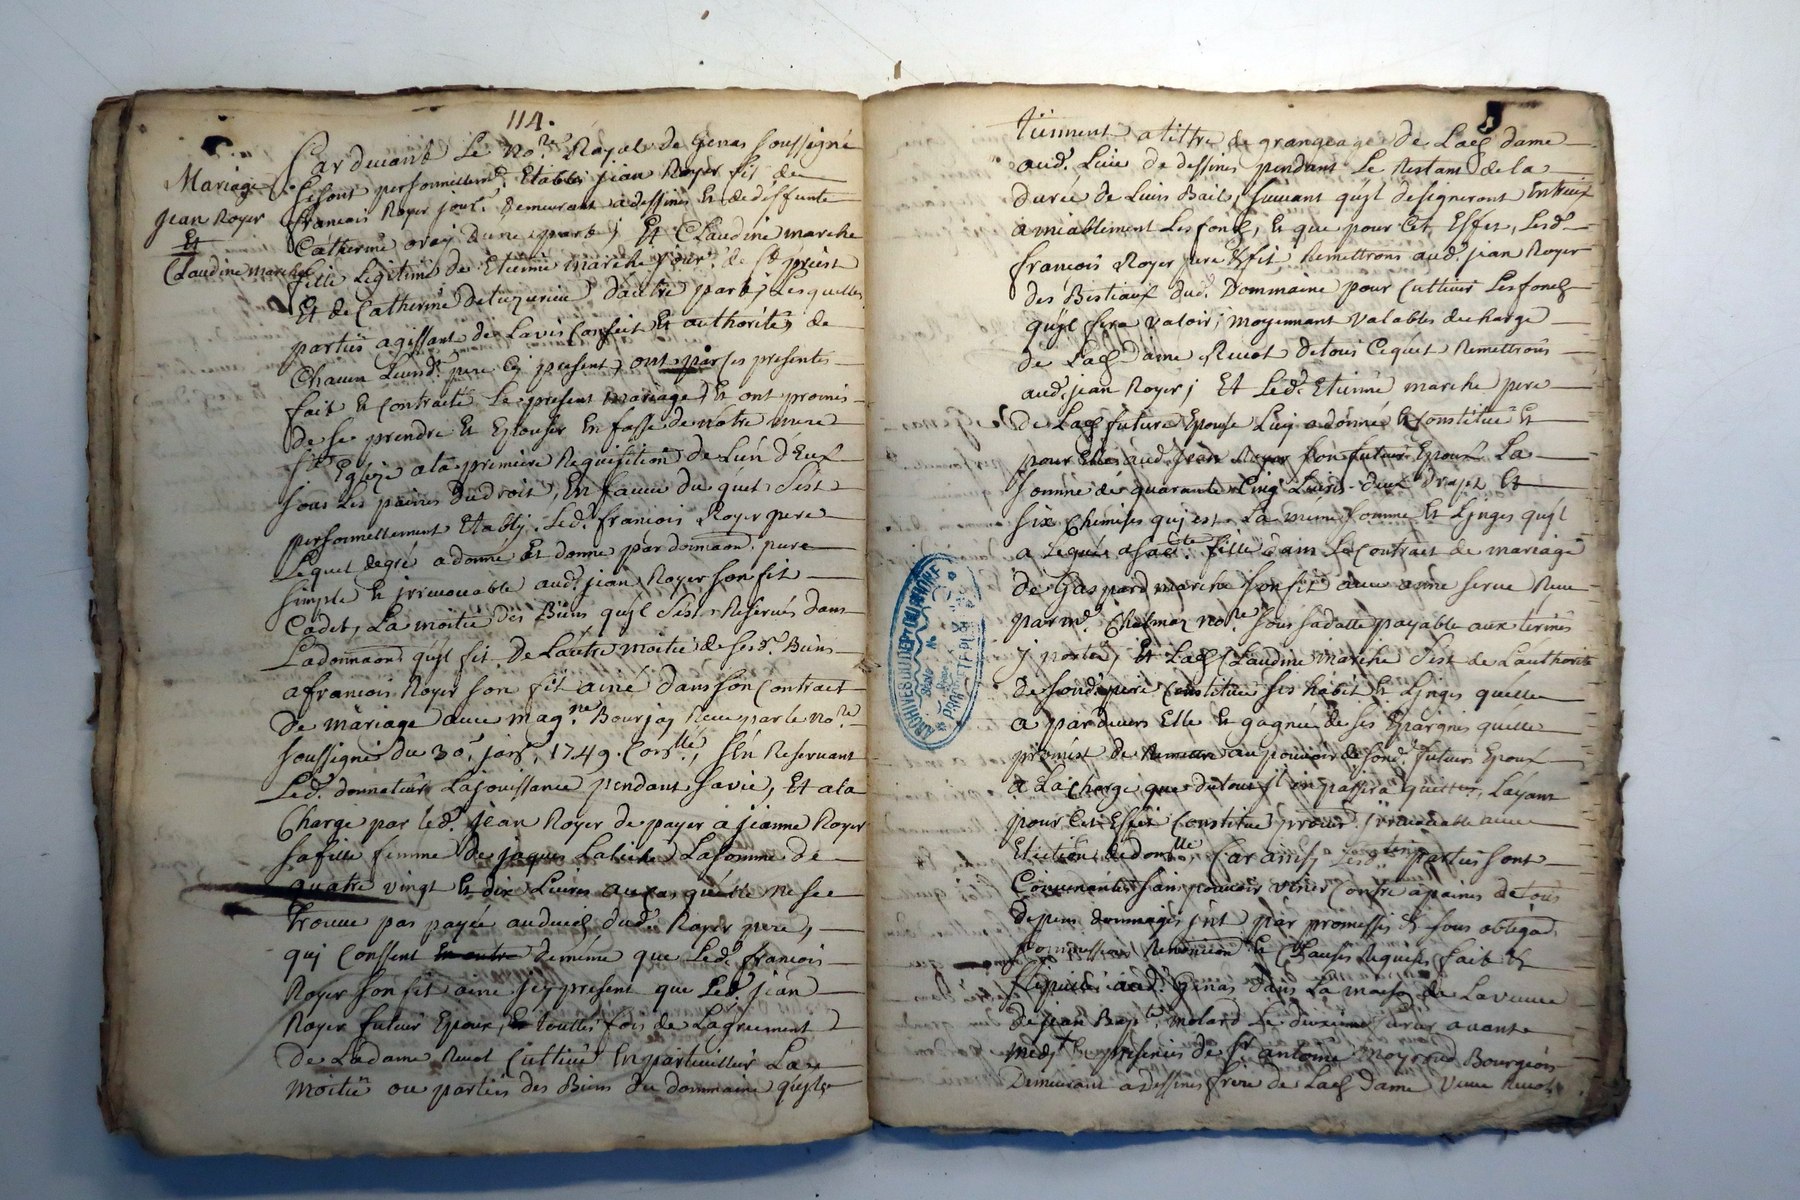 114.
Mariage
Jean Royer
Et
Claudine marche
Pardevant Le No.re Royal de Genas soussigné
se sont personnellem.t Etablis jean Royer fils de
francois Royer jour.r Demeurant a dessines Et de deffunte
Catherine oray Dune part; Et Claudine marche
fille Legitime de Etienne marche jour.r de St priest
Et de Catherine detuzurieu d'autre part; Lesquelles
parties agissant de Lavis Conseil Et authorité de
Chacun Leursd. pere Cy present, ont par Ces presentes
fait Et Contracté Le present mariage, Et ont promis
de se prendre Et Epouser En fasse de nôtre mere
s.te Eglize a la premiere Requisition de L'un d'Eux
sous Les peines Du droit, En faveur du quel s'est
personnellement Etably Led. francois Royer pere
Lequel de gré a donné Et donne par donnaon. pure
simple Et irrevocable aud. jean Royer son fils
Cadet, La moitié des Biens qu'yl s'est Reservés dans
La donnaon. qu'yl fit De L'autre moitié de sesd. Biens
a francois Royer son fils ainé dans son Contract
De màriage avec mag.ne Bourjay Receu par le No.re
soussigné du 30. janv. 1749. Con.llé, s'En Reservant
Led. donnateur La jouissance pendant sa vie, Et a la
Charge par led. jean Royer de payer à jeanne Royer
sa fille femme de jaques Labiche La somme de
quatre vingt Et dix Livres au cas qu'elle ne see
trouve pas payée au deceds dud. Royer pere,
quj Consent En outre de même que Led. francois
Royer son fils ainé jcy present que Led. jean
Royer futur Epoux, Et touttes fois de Lagreement
De La dame Revol Cultive En particullier La
moitié ou partie des Biens du dommaine qu'yls
tiennent a tittre de grangeage de Lad. dame
aud. Lieu de dessines pendant Le Restant de la
durée de Leur Bail, suivant qu'yl designeront Entreux
amiablement Les fonds, Et que pour Cet Effet, Lesd.
francois Royer pere Et fils Remettrons aud. jean Royer
des Bestiaux dud. Dommaine pour Cultiver Les fonds
qu'yl fera valoir; moyennant valable decharge
de Lad. Dame Revol de tous Ce quils Remettrons
aud. jean Royer; Et Led. Etienne marche pere
De Lad. future Epouse Luy a donné Et Constitué Et
pour Elle aud. Jean Royer son futur Epoux La
somme de quarante Cinq Livres deux Draps Et
six Chemises quj est La même somme Et Linges qu'yl
a Legués a sad.te fille dans Le Contrat de mariage
de Gaspard marche son fils avec anne serve Receu
par M.e Chalmaz no.re sous sa datte payable aux termes
y portés, Et Lad. Claudine marche s'est de L'authorité
de sond. pere Constitué ses habits Et Linges qu'elle
a pardevers Elle Et gagnés de ses Epargnes qu'elle
promet de Remettre au pouvoir de sond. futur Epoux
a La Charge que du tout jl en passera quittce, L'ayant
pour Cet Effet Constitué procur. jrrevocable avec
Election de dom.lle, Car ainsy Lesd. parties sont
Convenantes sans pouvoir venir Contre a peines de tous
depens dommages jnt. par promesses Et sous obligaõ.
soumissions Renonciaõn Et Clauses Requises, fait Et
aud. Genas Dans La maison de La veuve
De jean Bap.te molard Le dixieme fevrier avant
midj En presence de Sr. antoine moyroud Bourgeois
Demeurant a dessines frere de Lad. dame veuve Revol
ARCHIVES DU DEPT DU RHONE